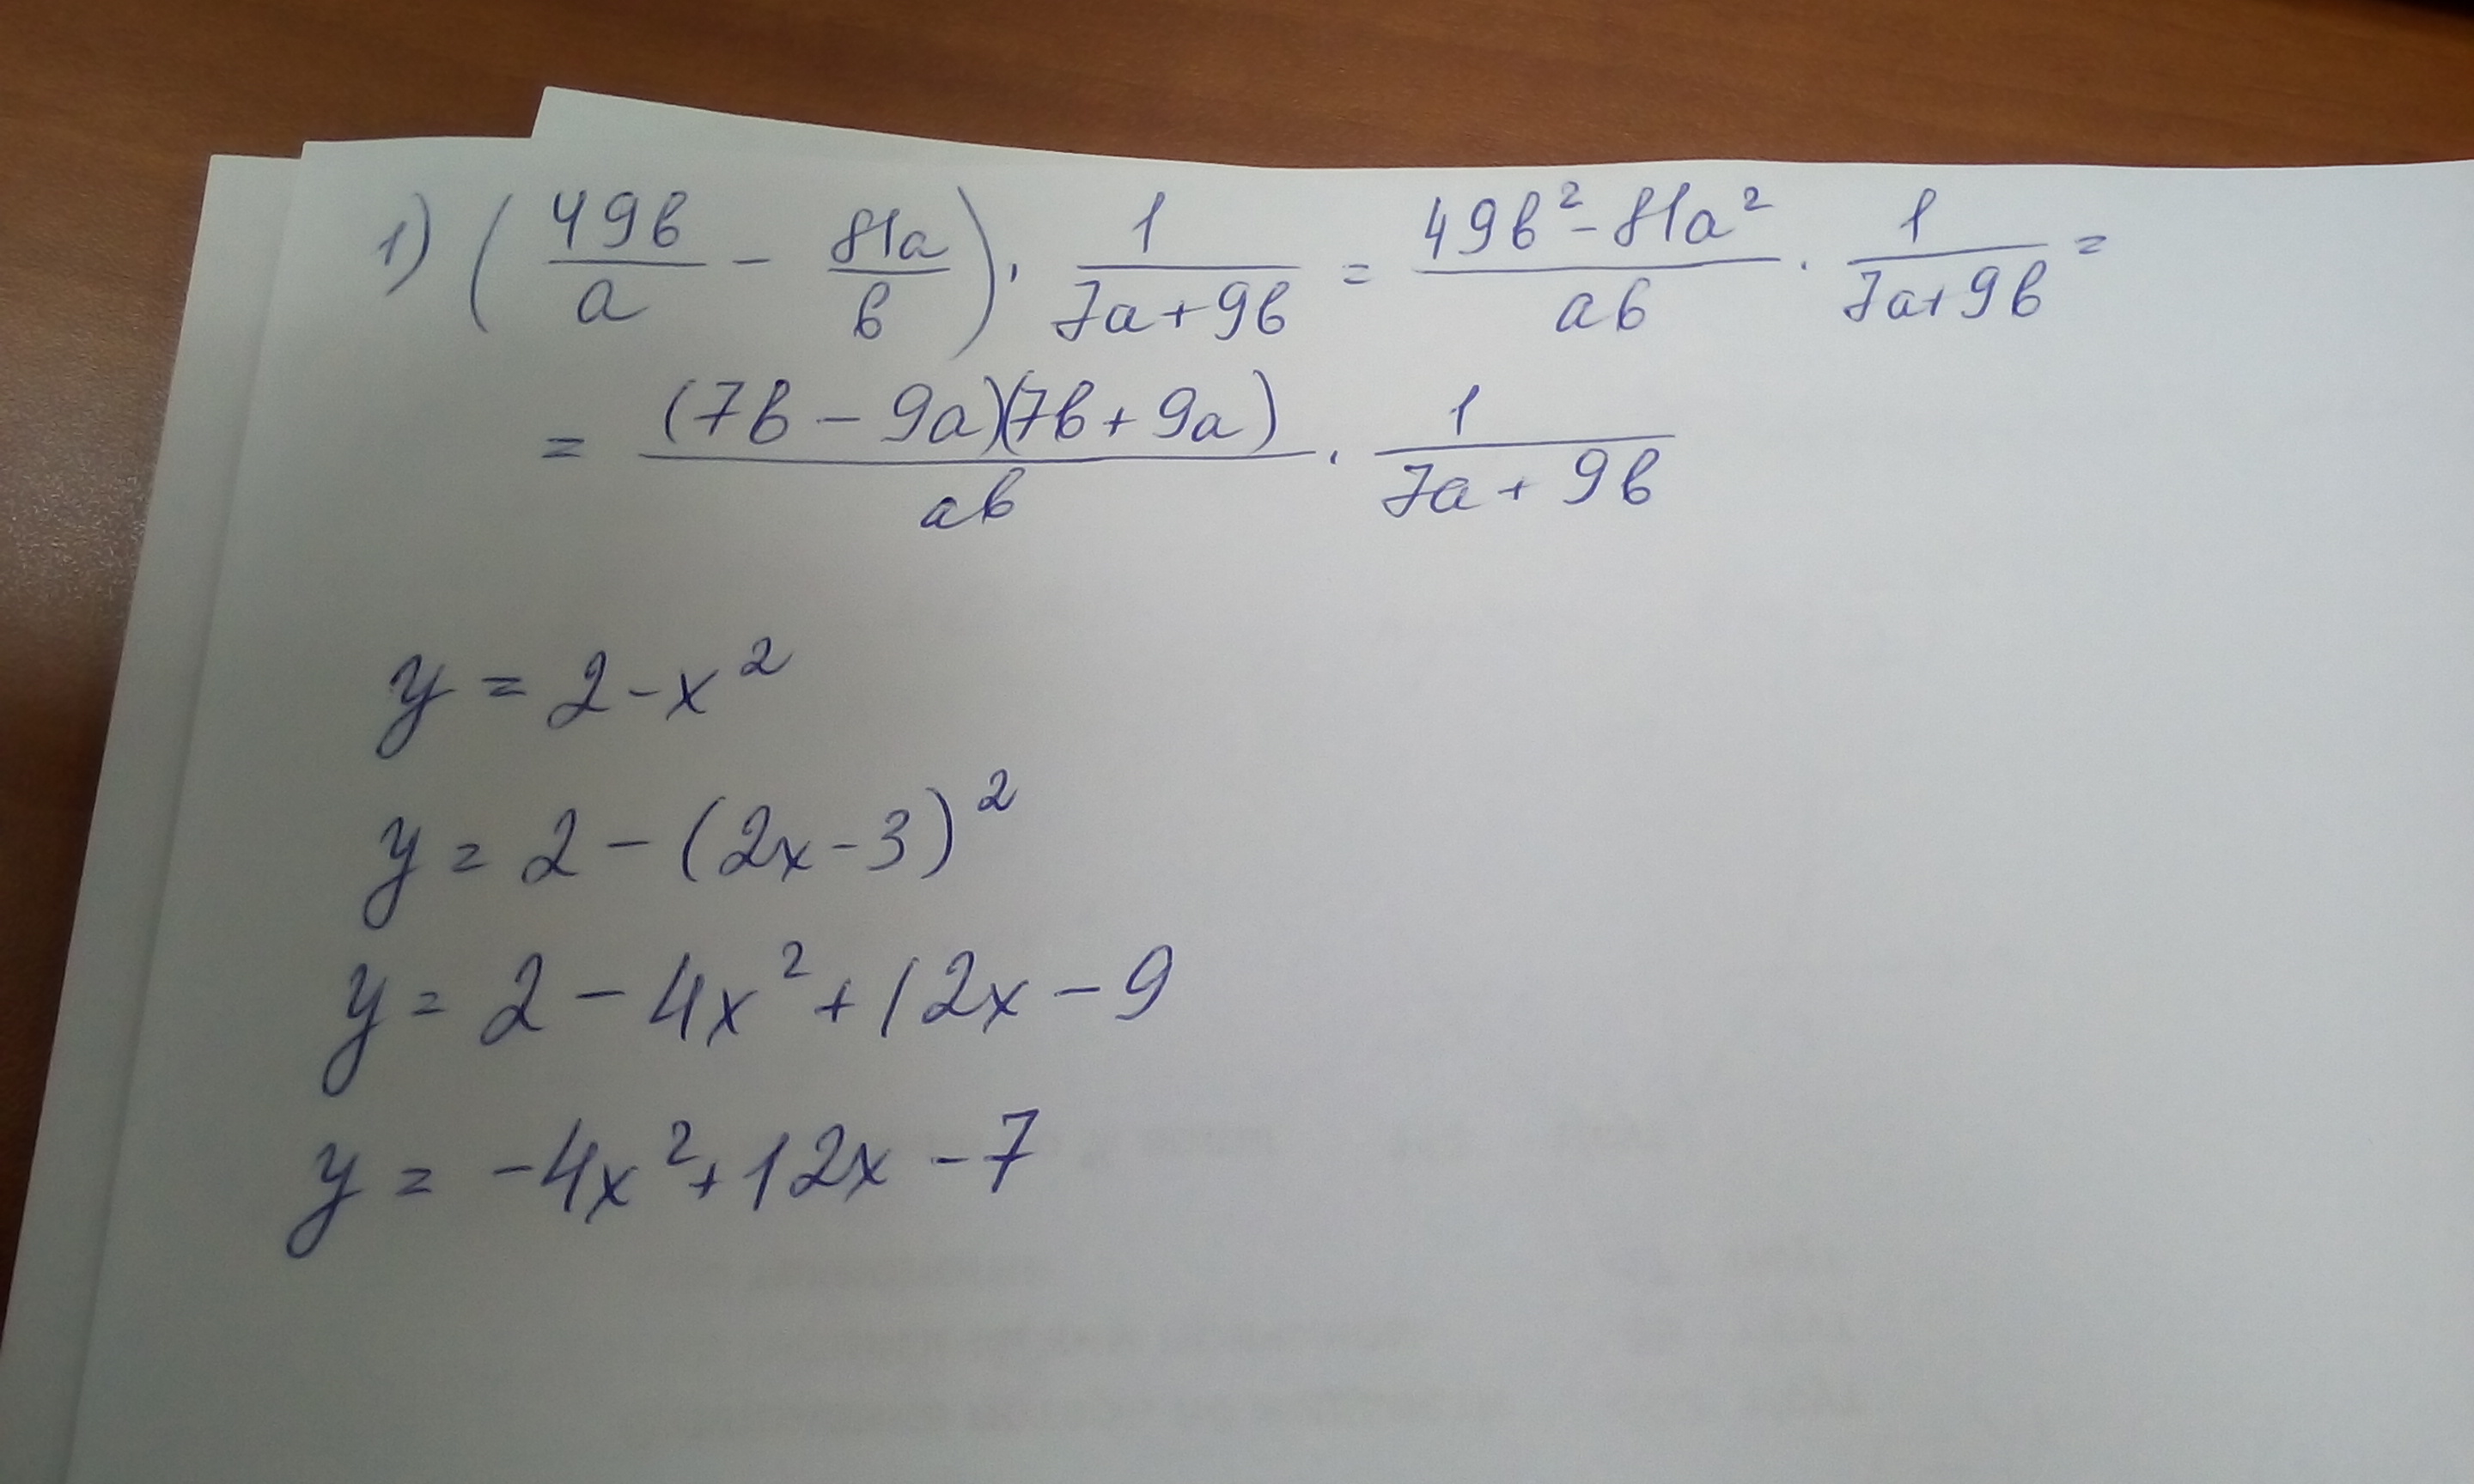 1) (49b/a - 81a/b) · 1/(7a+9b) = (49b² - 81a²)/(ab) · 1/(7a+9b) =
= (7b - 9a)(7b + 9a)/(ab) · 1/(7a + 9b)
y = 2 - x²
y = 2 - (2x - 3)²
y = 2 - 4x² + 12x - 9
y = -4x² + 12x - 7